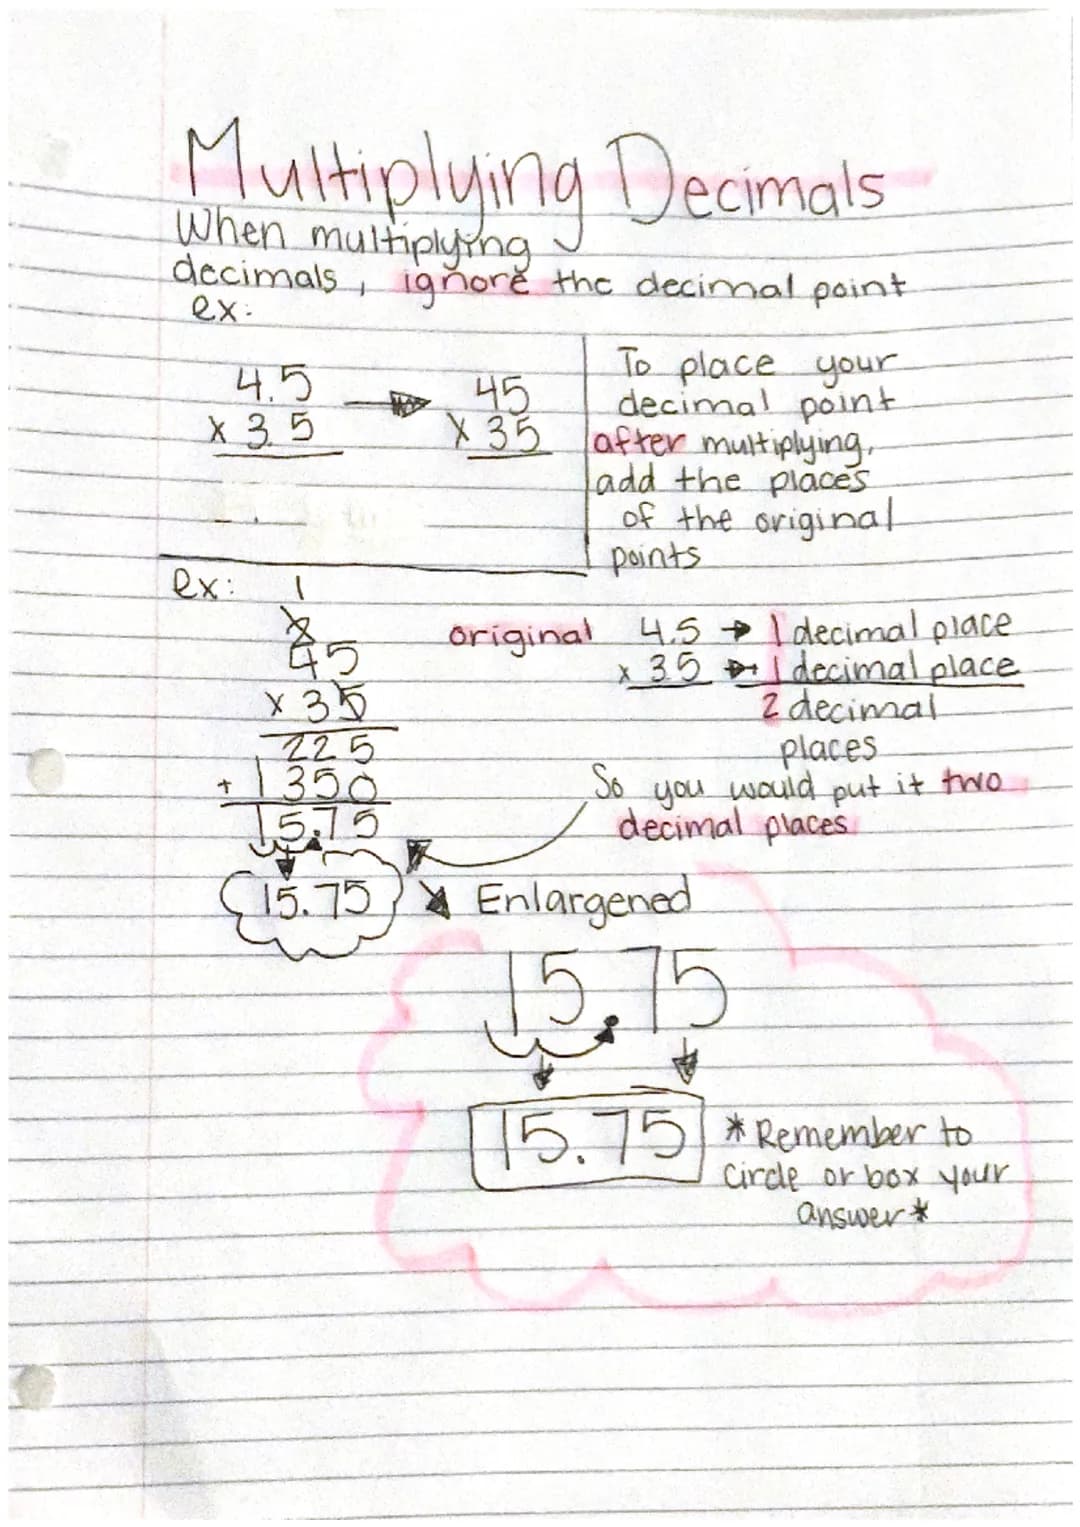 Multiplying Decimals
When multiplying
decimals, ignore the decimal point
ex:
4.5 → 45
x 3.5 x 35
To place your
decimal point
after multiplying,
add the places
of the original
points
ex: 1
2
45
x 35
225
+ 1350
15.75
15.75
original 4.5 → 1 decimal place
x 3.5 → 1 decimal place
2 decimal
places
So you would put it two
decimal places
Enlargened
15.75
15.75
* Remember to
circle or box your
answer *